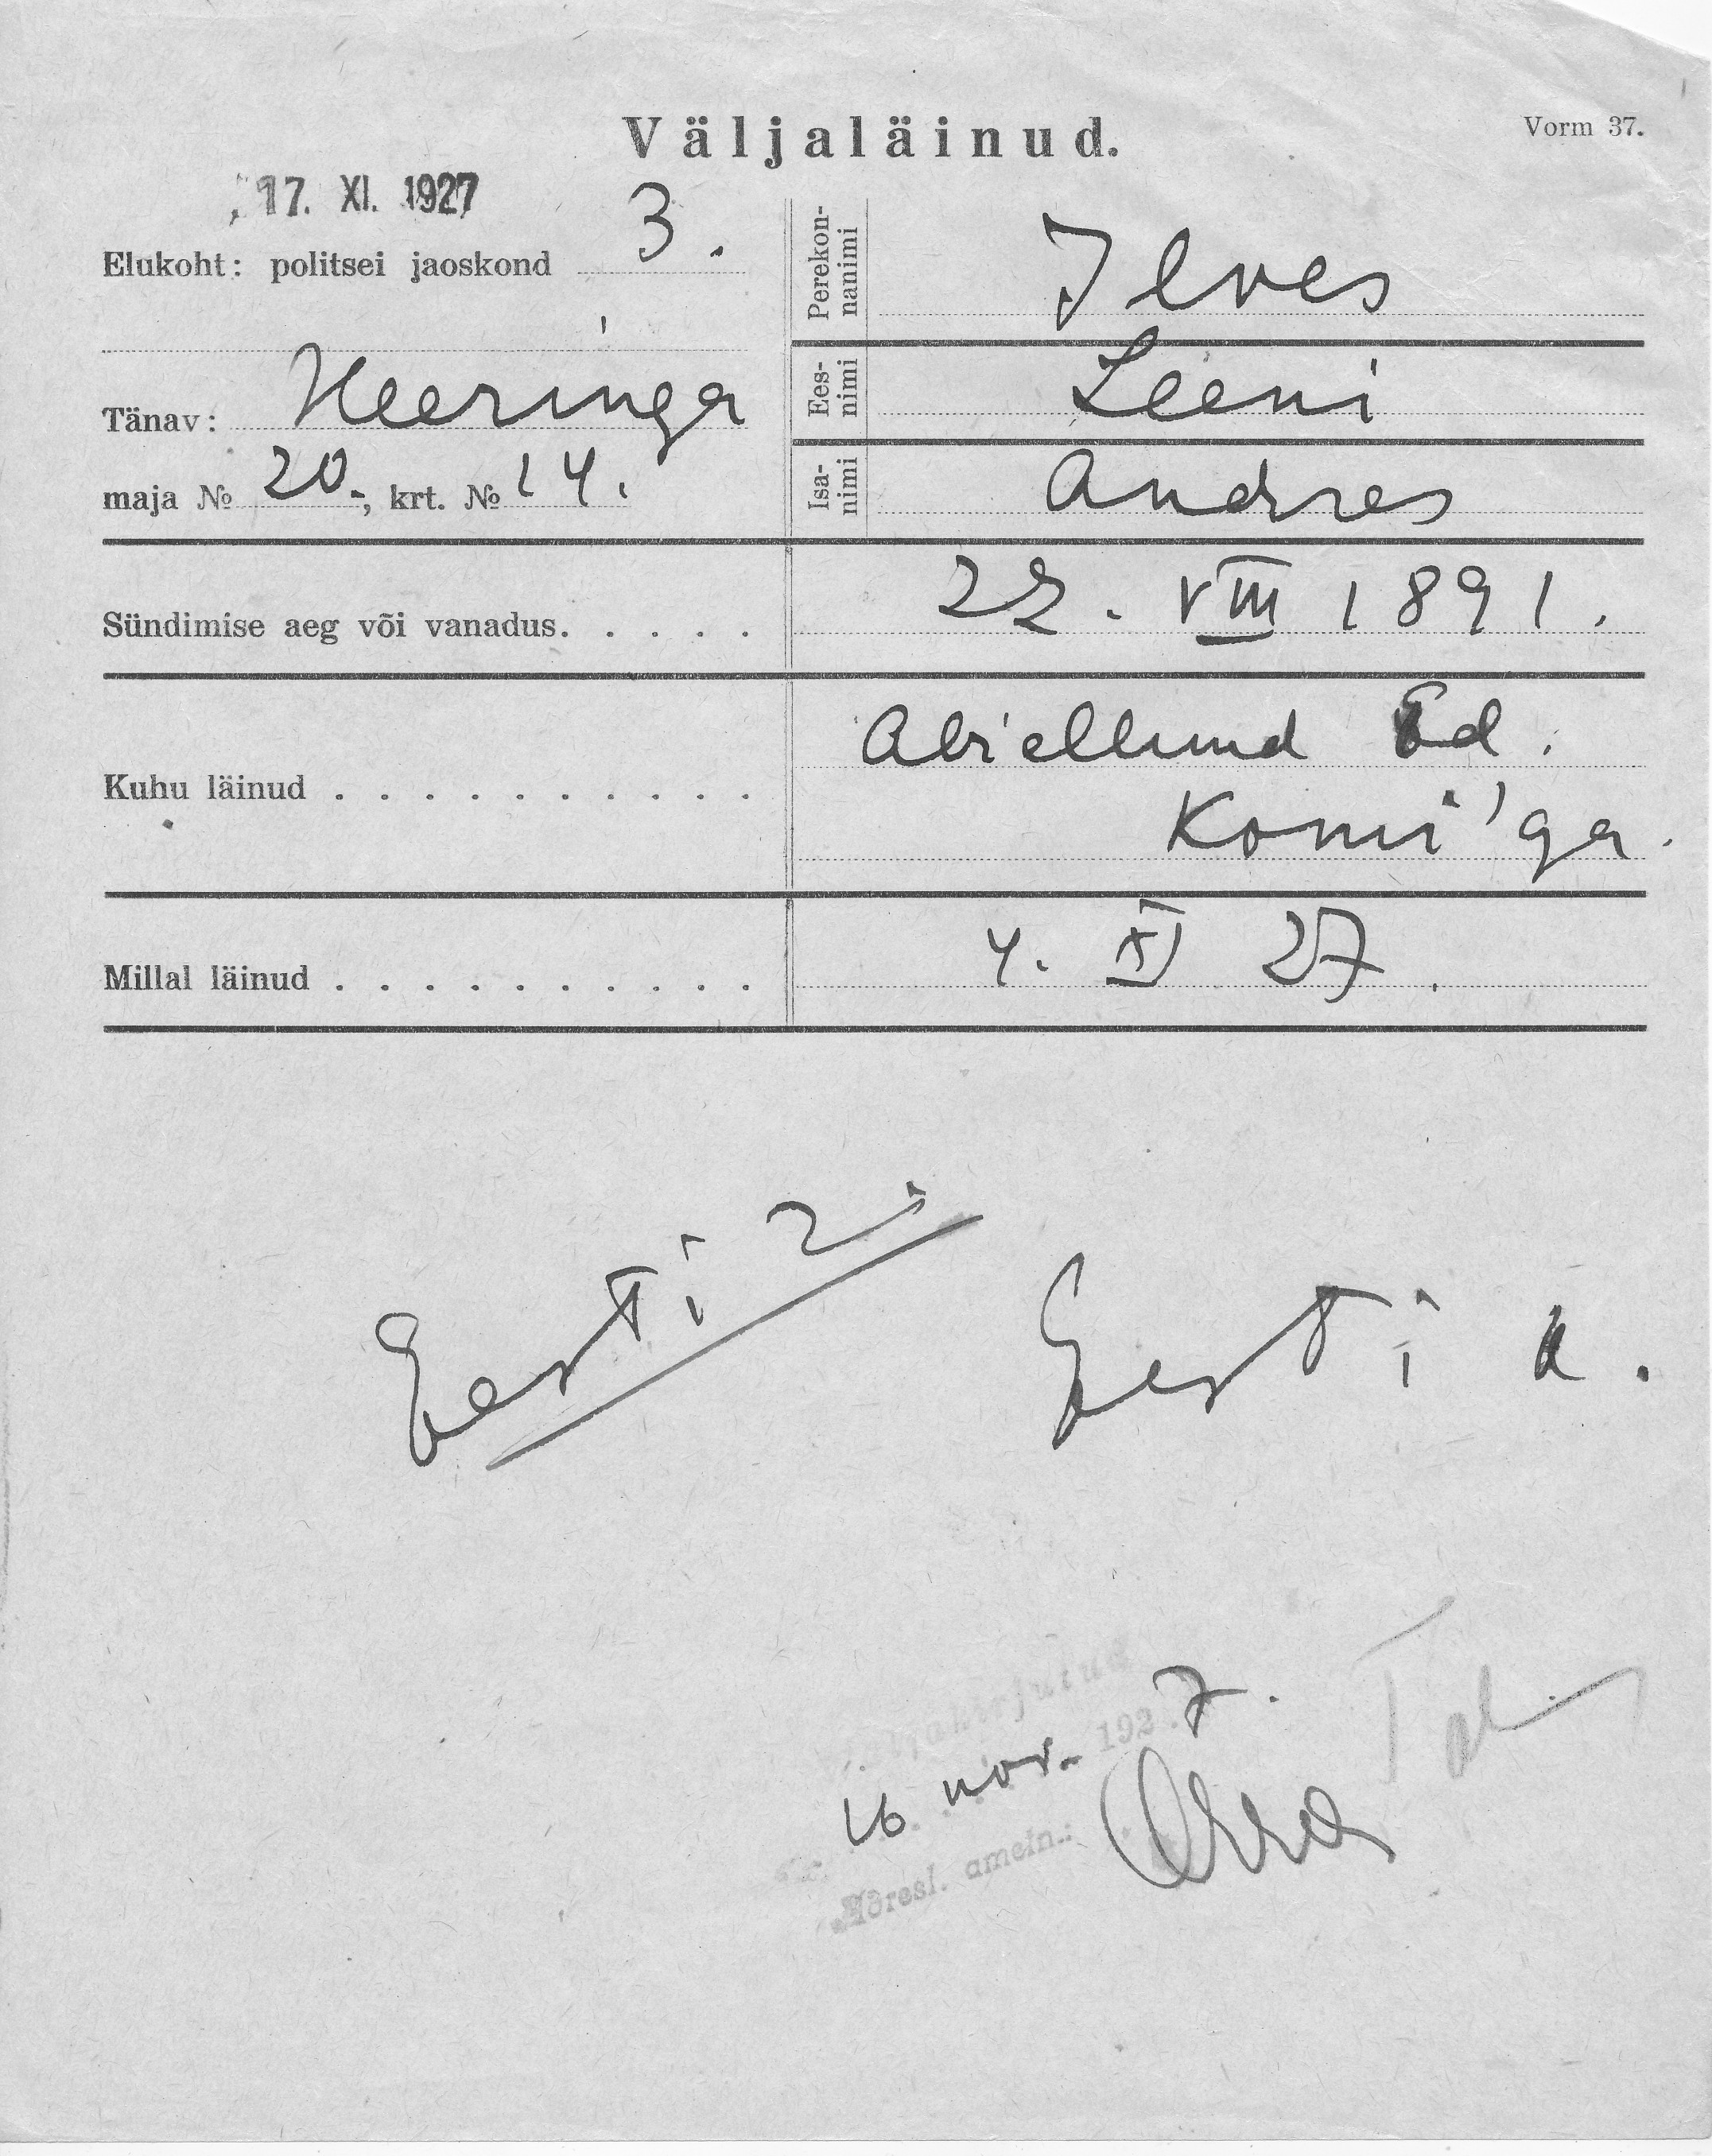 Väljaläinud.
Vorm 37.
17. XI. 1927
Elukoht: politsei jaoskond 3.
Tänav: Heeringa
maja № 20-, krt. № 14.
Perekon-
nanimi
Ilves
Ees-
nimi
Leeni
Isa-
nimi
Andres
Sündimise aeg või vanadus. . . . . 22. VIII 1891.
Kuhu läinud . . . . . . . . . . Abiellund Ed.
Komi'ga.
Millal läinud . . . . . . . . . . 4. XI 27.
Eesti
Eesti k.
192 7.
16 nov.
Aadresl. ametn.: